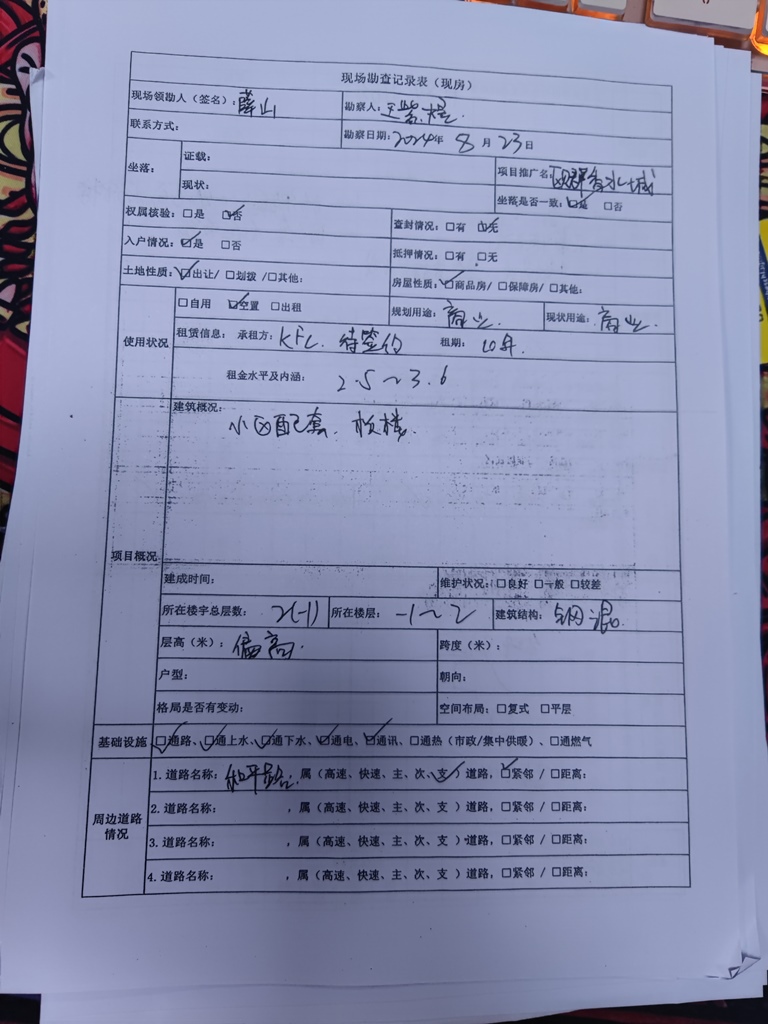 现场勘查记录表（现房）
现场领勘人（签名）： 薛山 勘察人： 王
联系方式： 勘察日期：2024年 8 月 23 日
坐落： 证载： 项目推广名： 香水城
现状： 坐落是否一致：☑是 □否
权属核验：□是 ☑否 查封情况：□有 ☑无
入户情况：☑是 □否 抵押情况：□有 □无
土地性质：☑出让/ □划拨 /□其他： 房屋性质：☑商品房/ □保障房/ □其他：
使用状况 □自用 ☑空置 □出租 规划用途： 商业. 现状用途： 商业.
租赁信息： 承租方： KFC. 待签约 租期： 10年.
租金水平及内涵： 2.5～3.6
项目概况 建筑概况：
小区配套.
建成时间： 维护状况：□良好 □一般 □较差
所在楼宇总层数： 2(-1) 所在楼层： -1～2 建筑结构： 钢混.
层高（米）： 偏高. 跨度（米）：
户型： 朝向：
格局是否有变动： 空间布局：□复式 □平层
基础设施 ☑通路、☑通上水、☑通下水、☑通电、☑通讯、□通热（市政/集中供暖）、□通燃气
周边道路情况 1. 道路名称： 和平路 ，属（高速、快速、主、次、支✓）道路，☑紧邻 / □距离：
2. 道路名称： ，属（高速、快速、主、次、支 ）道路，□紧邻 / □距离：
3. 道路名称： ，属（高速、快速、主、次、支 ）道路，□紧邻 / □距离：
4. 道路名称： ，属（高速、快速、主、次、支 ）道路，□紧邻 / □距离：